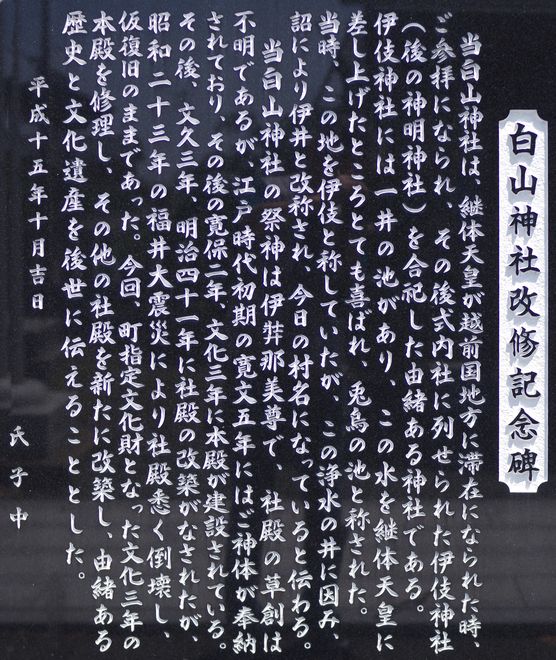 白山神社改修記念碑
当白山神社は、継体天皇が越前国地方に滞在になられた時、
ご参拝になられ、その後式内社に列せられた伊伎神社
（後の神明神社）を合祀した由緒ある神社である。
伊伎神社には一井の池があり、この水を継体天皇に
差し上げたところとても喜ばれ、兎鳥の池と称された。
当時、この地を伊伎と称していたが、この浄水の井に因み、
詔により伊井と改称され、今日の村名になっていると伝わる。
当白山神社の祭神は伊弉那美尊で、社殿の草創は
不明であるが、江戸時代初期の寛文五年にはご神体が奉納
されており、その後の寛保二年、文化三年に本殿が建設されている。
その後、文久三年、明治四十一年に社殿の改築がなされたが、
昭和二十三年の福井大震災により社殿悉く倒壊し、
仮復旧のままであった。今回、町指定文化財となった文化三年の
本殿を修理し、その他の社殿を新たに改築し、由緒ある
歴史と文化遺産を後世に伝えることとした。
平成十五年十月吉日
氏子中